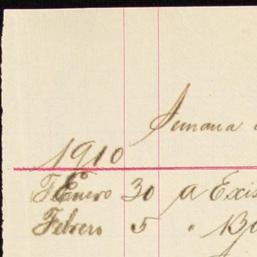 Semana
1910
Enero 30 a Exis
Febrero 5 "